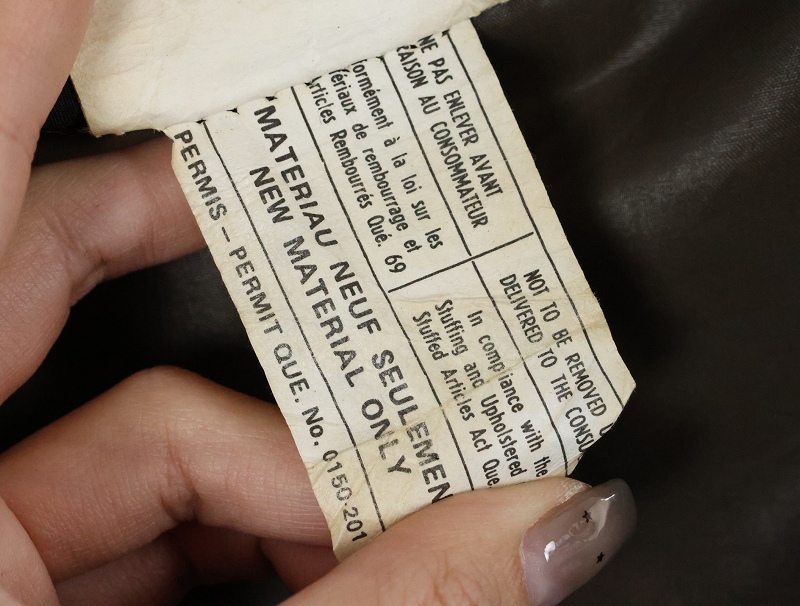 NE PAS ENLEVER AVANT
AU CONSOMMATEUR
à la loi sur les
de rembourrage et
Articles Rembourrés Qué. 69
NOT TO BE REMOVED
DELIVERED TO THE
In compliance with the
Stuffing and Upholstered
Stuffed Articles Act Que.
MATERIAU NEUF
NEW MATERIAL ONLY
PERMIS – PERMIT QUE. No. 0150-201